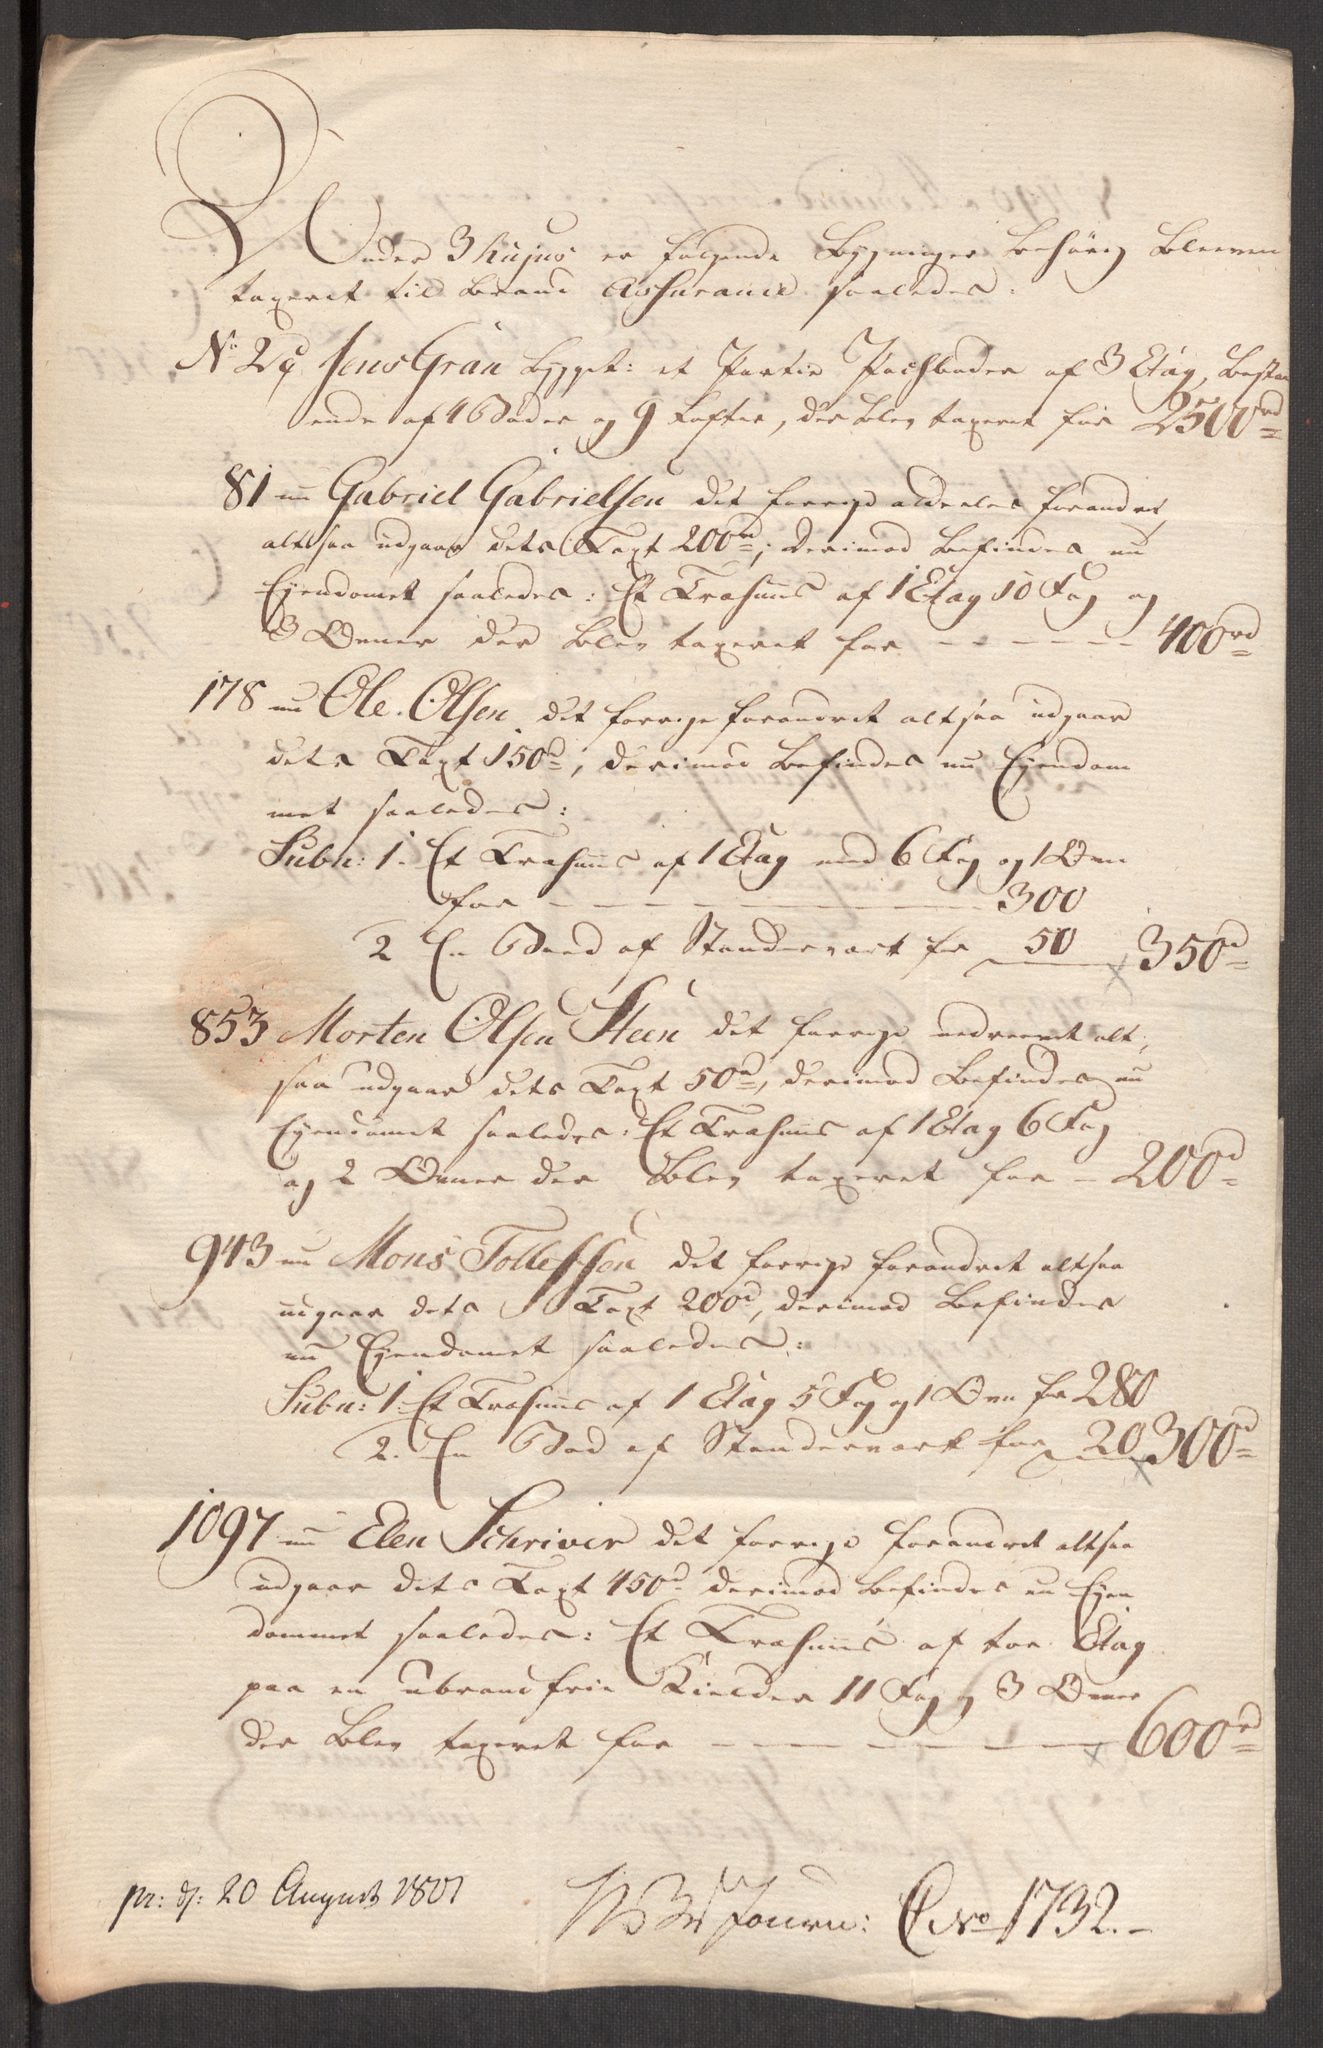 Under 3 hujus er følgende Bygninger behørig bleeven
taxeret til Brand Assurance saaledes:
No 29 Jens Gran bygget: et Partie Pachboder af 3 Etag, bestaa
ende af 4 Boder og 9 Lofter, der blev taxeret for 2500rd
81 nu Gabriel Gabrielsen det forrige aldeeles forandret,
altsaa udgaar dets Taxt 200rd; derimod befindes nu
Ejendomet saaledes: Et Træhuus af 1 Etag 10 Fag og
3 Ovner der blev taxeret for - - - - - 400rd
178 nu Ole Olsen det forrige forandret altsaa udgaar
dets Taxt 150d, derimod befindes nu Ejendom
met saaledes:
Subn: 1. Et Træhuus af 1 Etag med 6 Fag og 1 Ovn
for - - - - - - 300
2 En Boed af Standerværk for 50 350d
853 Morten Olsen Steen det forrige nedrevet alt,
saa udgaar dets Taxt 50d, derimod befindes nu
Ejendomet saaledes: Et Træhuus af 1 Etag 6 Fag
og 2 Ovner der blev taxeret for - 200d
943 nu Mons Tollefsen det forrige forandret altsaa
udgaar dets Taxt 200d, derimod befindes
nu Ejendomet saaledes:
Subn: 1. Et Træhuus af 1 Etag 5 Fag og 1 Ovn for 280
2. En Bod af Standerværk for 20 300d
1097 nu Elen Schriver det forrige forandret altsaa
udgaar dets Taxt 450d derimod befindes nu Ejen
dommet saaledes: Et Træhuus af toe Etag
paa en ubrandfrie Kielder 11 Fag og 3 Ovner
der blev taxeret for - - - - - 600rd
pr: d: 20 August 1801
Journ: C No 1732.-